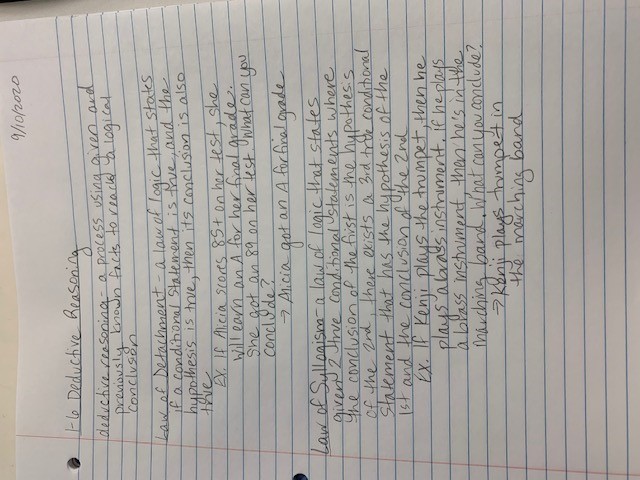 9/10/2020
1-6 Deductive Reasoning
deductive reasoning - a process using given and
previously known facts to reach a logical
conclusion
Law of Detachment - a law of logic that states
if a conditional statement is true, and the
hypothesis is true, then its conclusion is also
true
Ex. If Alicia scores 85+ on her test, she
will earn an A for her final grade.
She got an 89 on her test. What can you
conclude?
→ Alicia got an A for final grade
Law of Syllogism - a law of logic that states
given 2 true conditional statements where
the conclusion of the first is the hypothesis
of the 2nd, there exists a 3rd true conditional
statement that has the hypothesis of the
1st and the conclusion of the 2nd
Ex. If Kenji plays the trumpet, then he
plays a brass instrument. If he plays
a brass instrument, then he's in the
marching band. What can you conclude?
→ Kenji plays trumpet in
the marching band